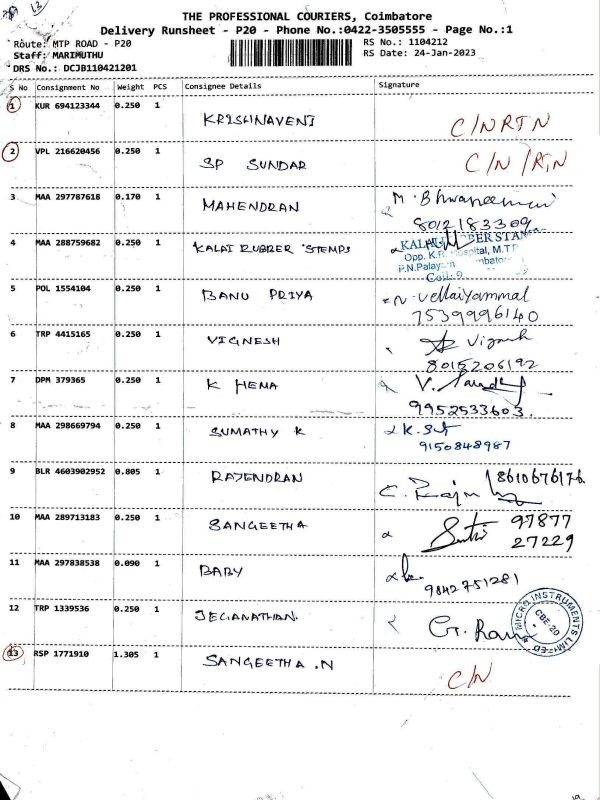 13
THE PROFESSIONAL COURIERS, Coimbatore
Delivery Runsheet - P20 - Phone No.:0422-3505555 - Page No.:1
Route: MTP ROAD - P20
RS No.: 1104212
Staff: MARIMUTHU
RS Date: 24-Jan-2023
DRS No.: DCJB110421201
S No Consignment No Weight PCS Consignee Details Signature
1 KUR 694123344 0.250 1 KRISHNAVENI C/N RTN
2 VPL 216620456 0.250 1 SP SUNDAR C/N /R,N
3 MAA 297787618 0.170 1 MAHENDRAN M. Bhuvaneswari
8012183309
4 MAA 288759682 0.250 1 KALAI RUBBER STEMPS
Opp. K.R. Hospital, M.T.P.
5 POL 1554104 0.250 1 BANU PRIYA N. Vellaiyammal
7539996140
6 TRP 4415165 0.250 1 VIGNESH Vignesh
8015206192
7 DPM 379365 0.250 1 K HEMA
9952533603.
8 MAA 298669794 0.250 1 SUMATHY K
9150848987
9 BLR 4603902952 0.805 1 RAJENDRAN 8610676176
10 MAA 289713183 0.250 1 SANGEETHA 97877
27229
11 MAA 297838538 0.090 1 BABY
9842751281
12 TRP 1339536 0.250 1 JEGANATHAN
MICRO INSTRUMENTS LIMITED
CBE-20
13 RSP 1771910 1.305 1 SANGEETHA .N C/N